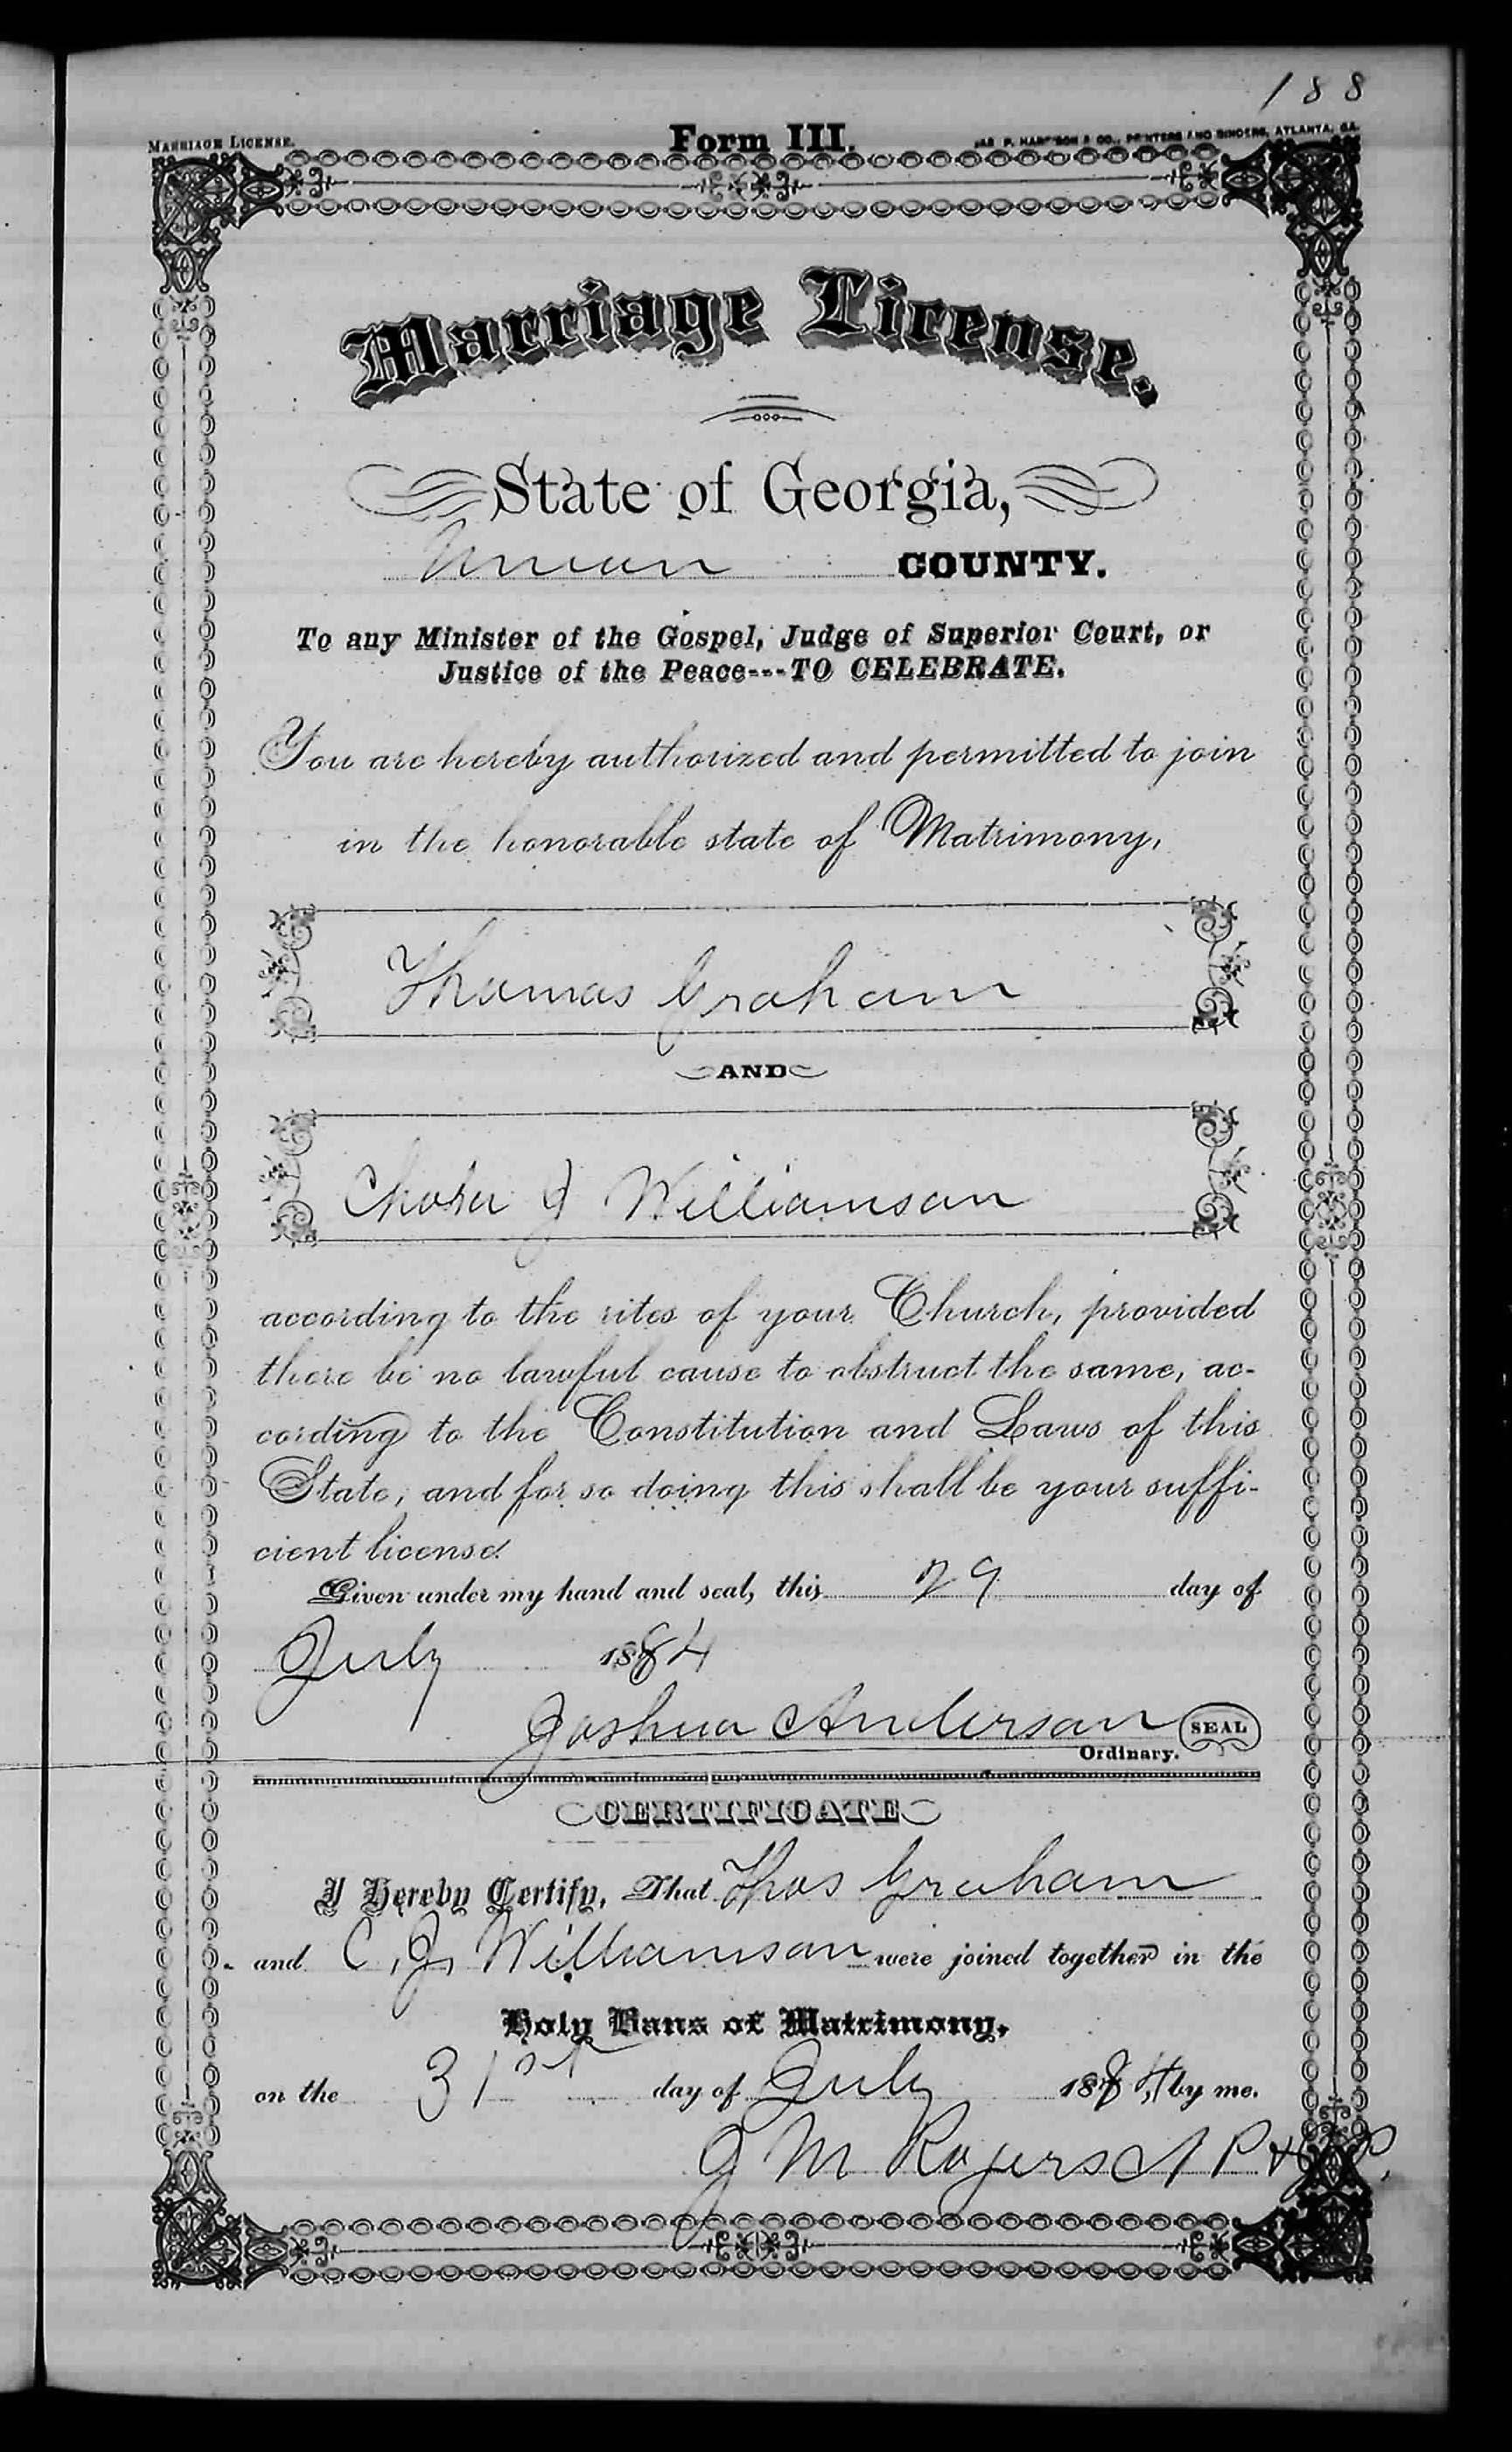 188
MARRIAGE LICENSE.
Form III.
JAS P. HARRISON & CO., PRINTERS AND BINDERS, ATLANTA, GA.
Marriage License.
State of Georgia,
Union COUNTY.
To any Minister of the Gospel, Judge of Superior Court, or
Justice of the Peace---TO CELEBRATE.
You are hereby authorized and permitted to join
in the honorable state of Matrimony,
Thomas Graham
AND
J Williamson
according to the rites of your Church, provided
there be no lawful cause to obstruct the same, ac-
cording to the Constitution and Laws of this
State, and for so doing this shall be your suffi-
cient license.
Given under my hand and seal, this 29 day of
July 1884
Joshua Anderson SEAL
Ordinary.
CERTIFICATE
I Hereby Certify, That Thos Graham
and C, J, Williamson were joined together in the
Holy Bans of Matrimony,
on the 31st day of July 1884, by me.
J M Rogers